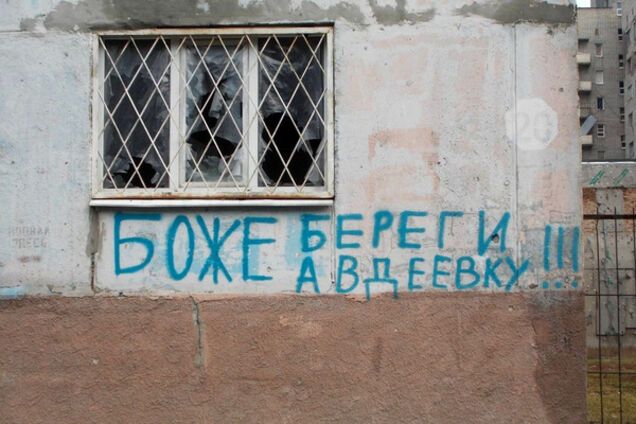 БОЖЕ БЕРЕГИ !!!
АВДЕЕВКУ
20